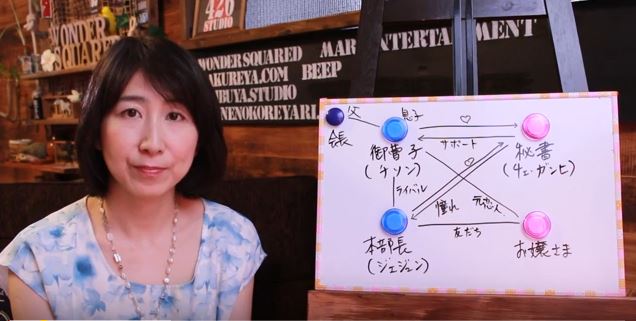 426
STUDIO
WONDER
SQUARED
WONDER SQUARED MAR ENTERTAINMENT
AKUREYA.COM BEEP
BUYA.STUDIO
NENOKOREYARI
父
会長
息子
御曹子
(チソン)
♡
サポート
秘書
(チェ・ガンヒ)
ライバル
♡
憧れ
元恋人
本部長
(ジェジュン)
友だち
お嬢さま